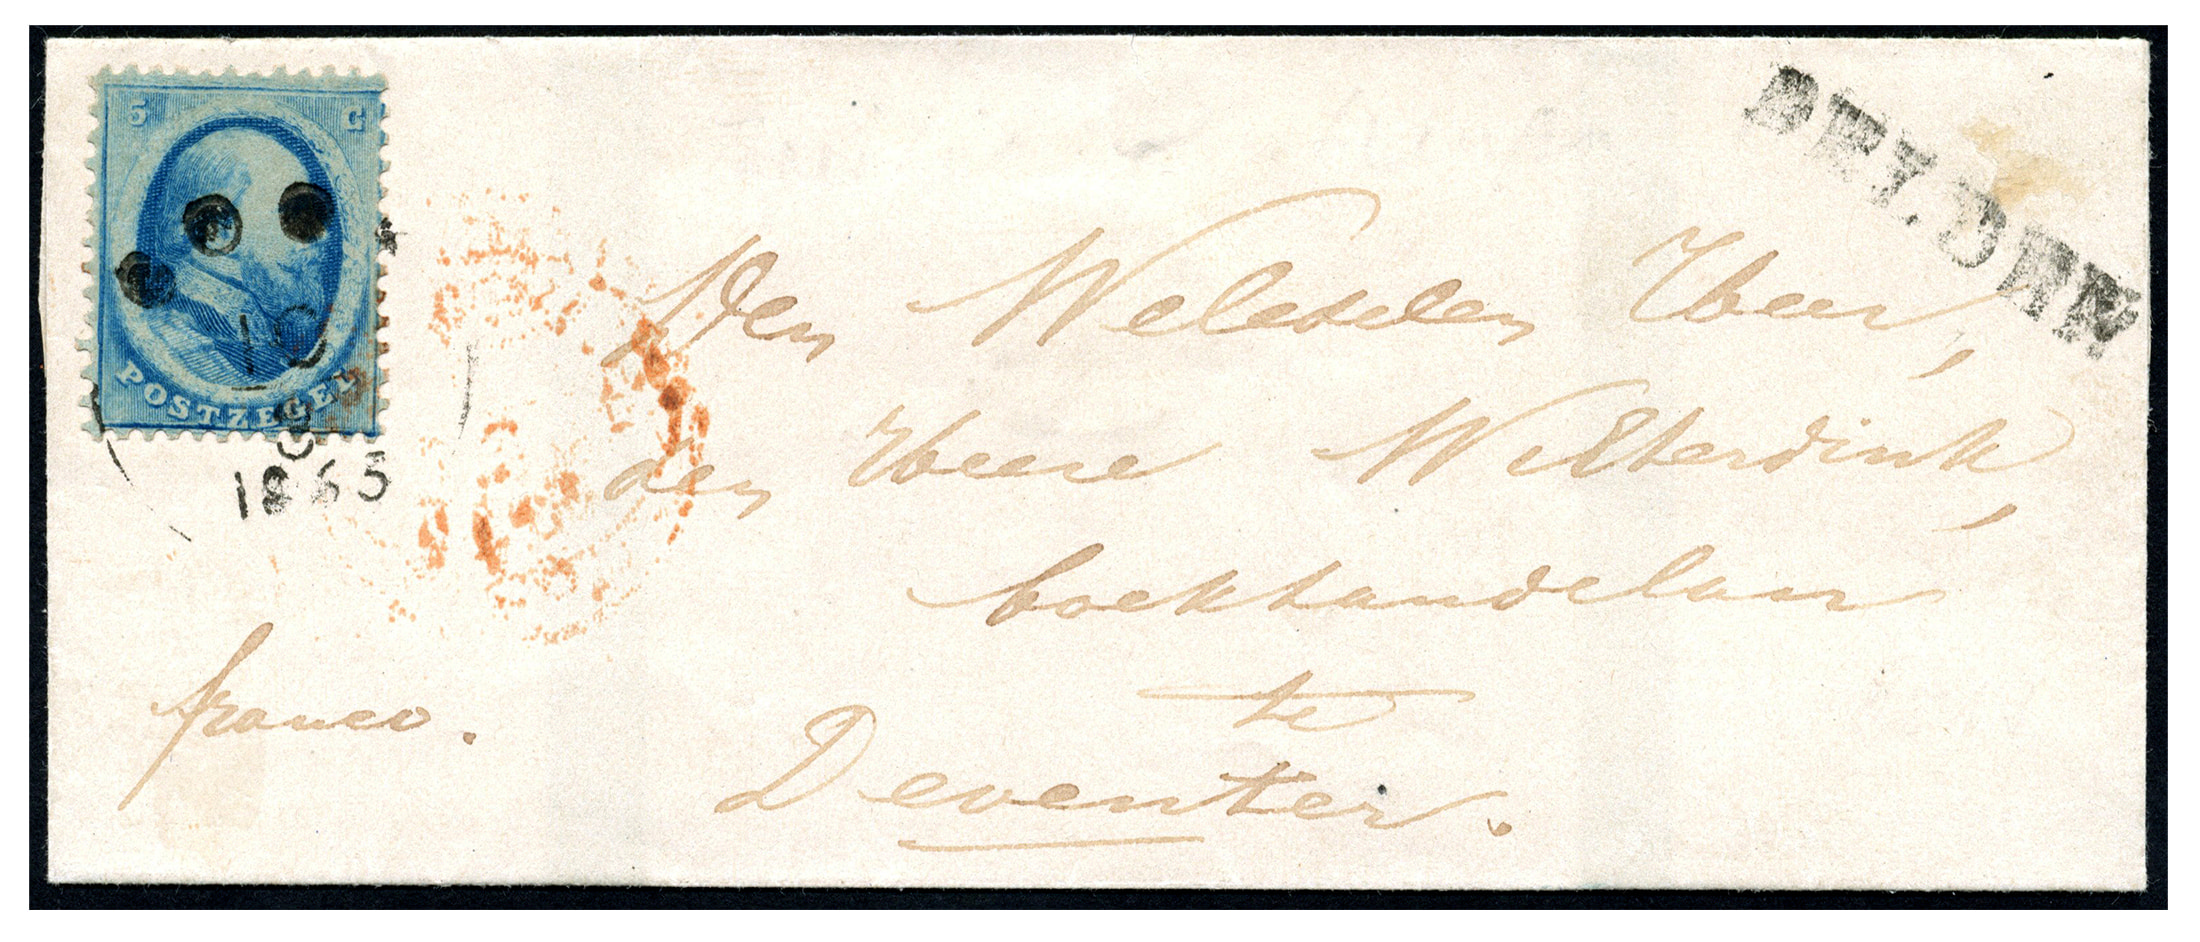 5 C
POSTZEGEL
10
1865
DELDEN
Den Weledelen Heer,
den Heere Wilterdink,
boekhandelaar
te
Deventer.
franco.